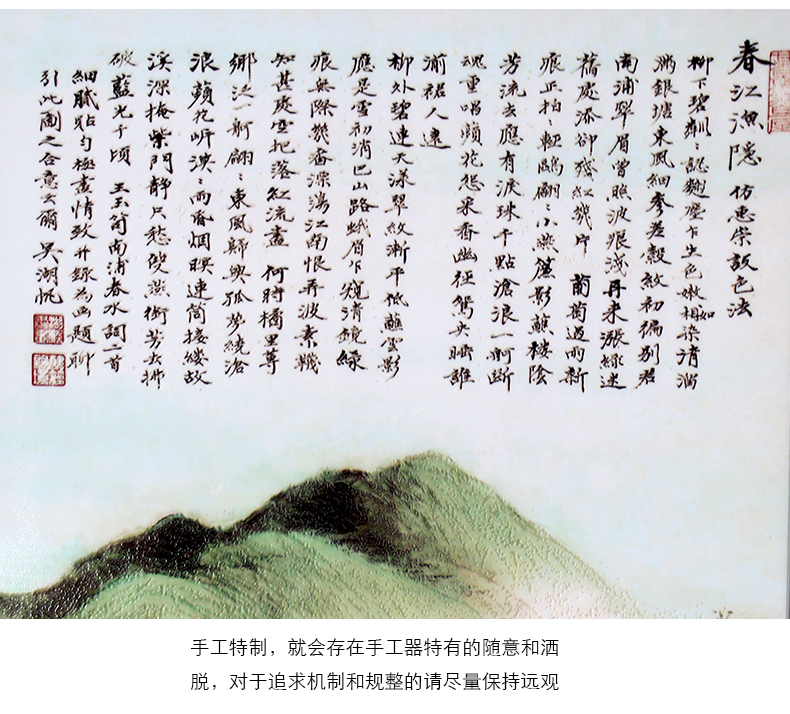 春江漁隱 仿惠崇設色法
柳下碧粼〻認麴塵乍生色嫩如相染清溜
滿銀塘東風細參差縠紋初徧別君
南浦翠眉曾照波痕淺再來漲綠迷
舊處添卻殘紅幾片 葡萄過雨新
痕正拍〻輕鷗翩〻小燕簾影蘸樓陰
芳流去應有淚珠千點滄浪一舸斷
魂重唱蘋花怨采香幽徑鴛央睡誰
湔裙人遠
柳外碧連天漾翠紋漸平低蘸雲影
應是雪初消巴山路蛾眉乍窺清鏡綠
痕無際幾番漂蕩江南恨弄波素襪
知甚處空把落紅流盡 何時橘里蓴
鄉泛一舸翩〻東風歸興孤夢繞滄
浪蘋花岸漠雨昏烟暝連筒接縷故
溪深掩柴門靜只愁雙燕銜芳去拂
破藍光千頃 王玉笥南浦春水詞二首
細膩貼勻極盡情致并錄為畫題聊
引此圖之合意云爾 吳湖帆
手工特制，就会存在手工器特有的随意和洒
脱，对于追求机制和规整的请尽量保持远观